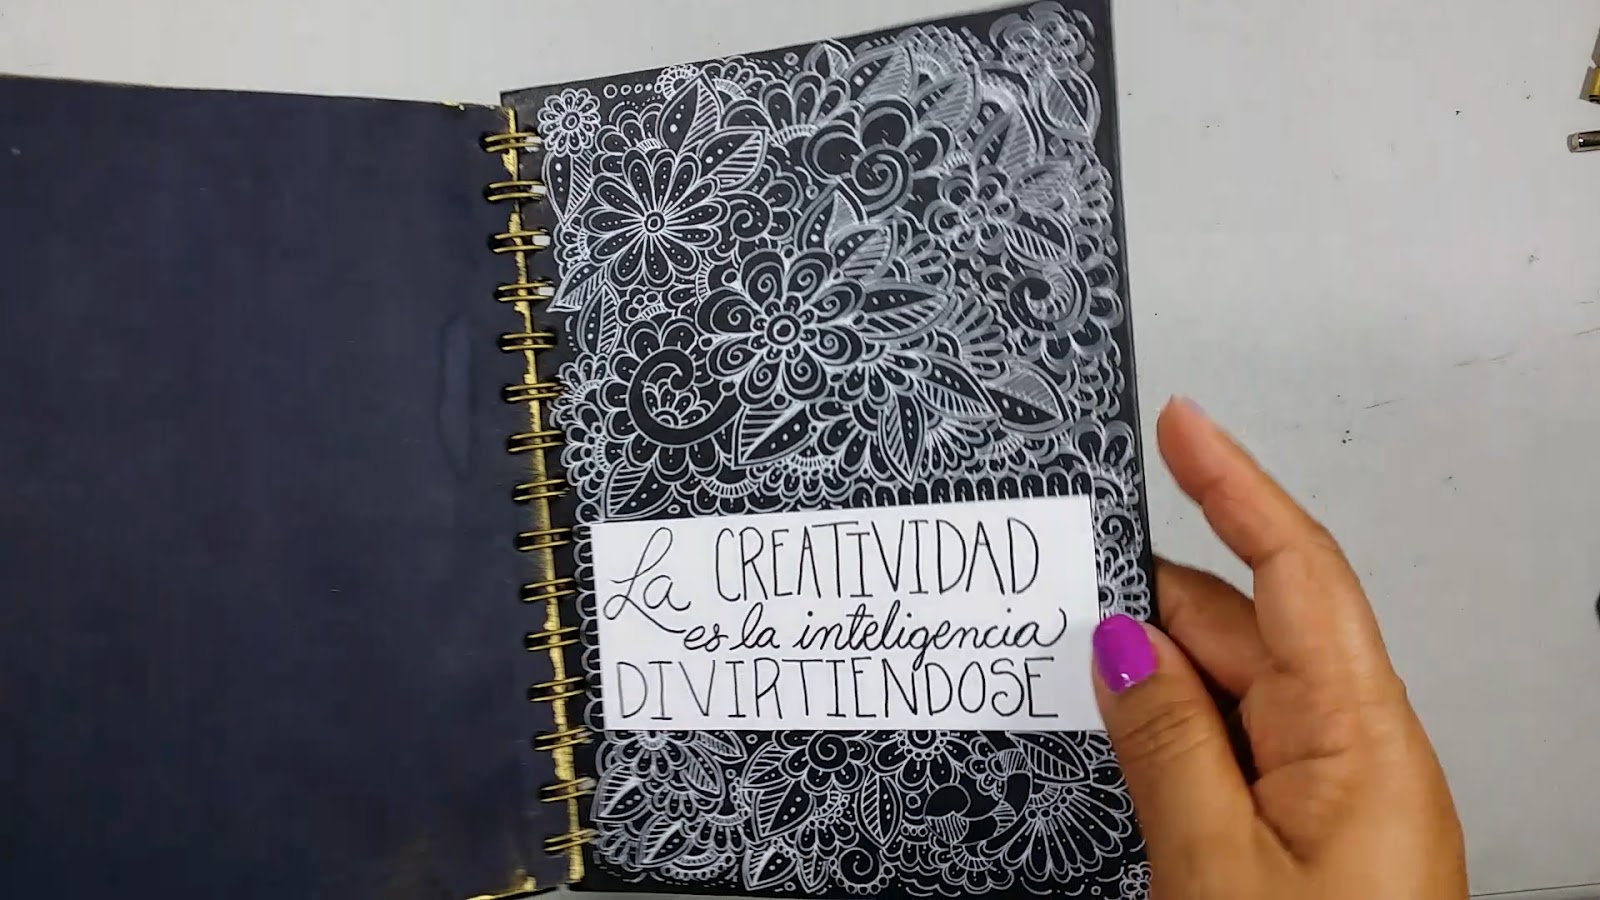 La CREATIVIDAD
es la inteligencia
DIVIRTIENDOSE